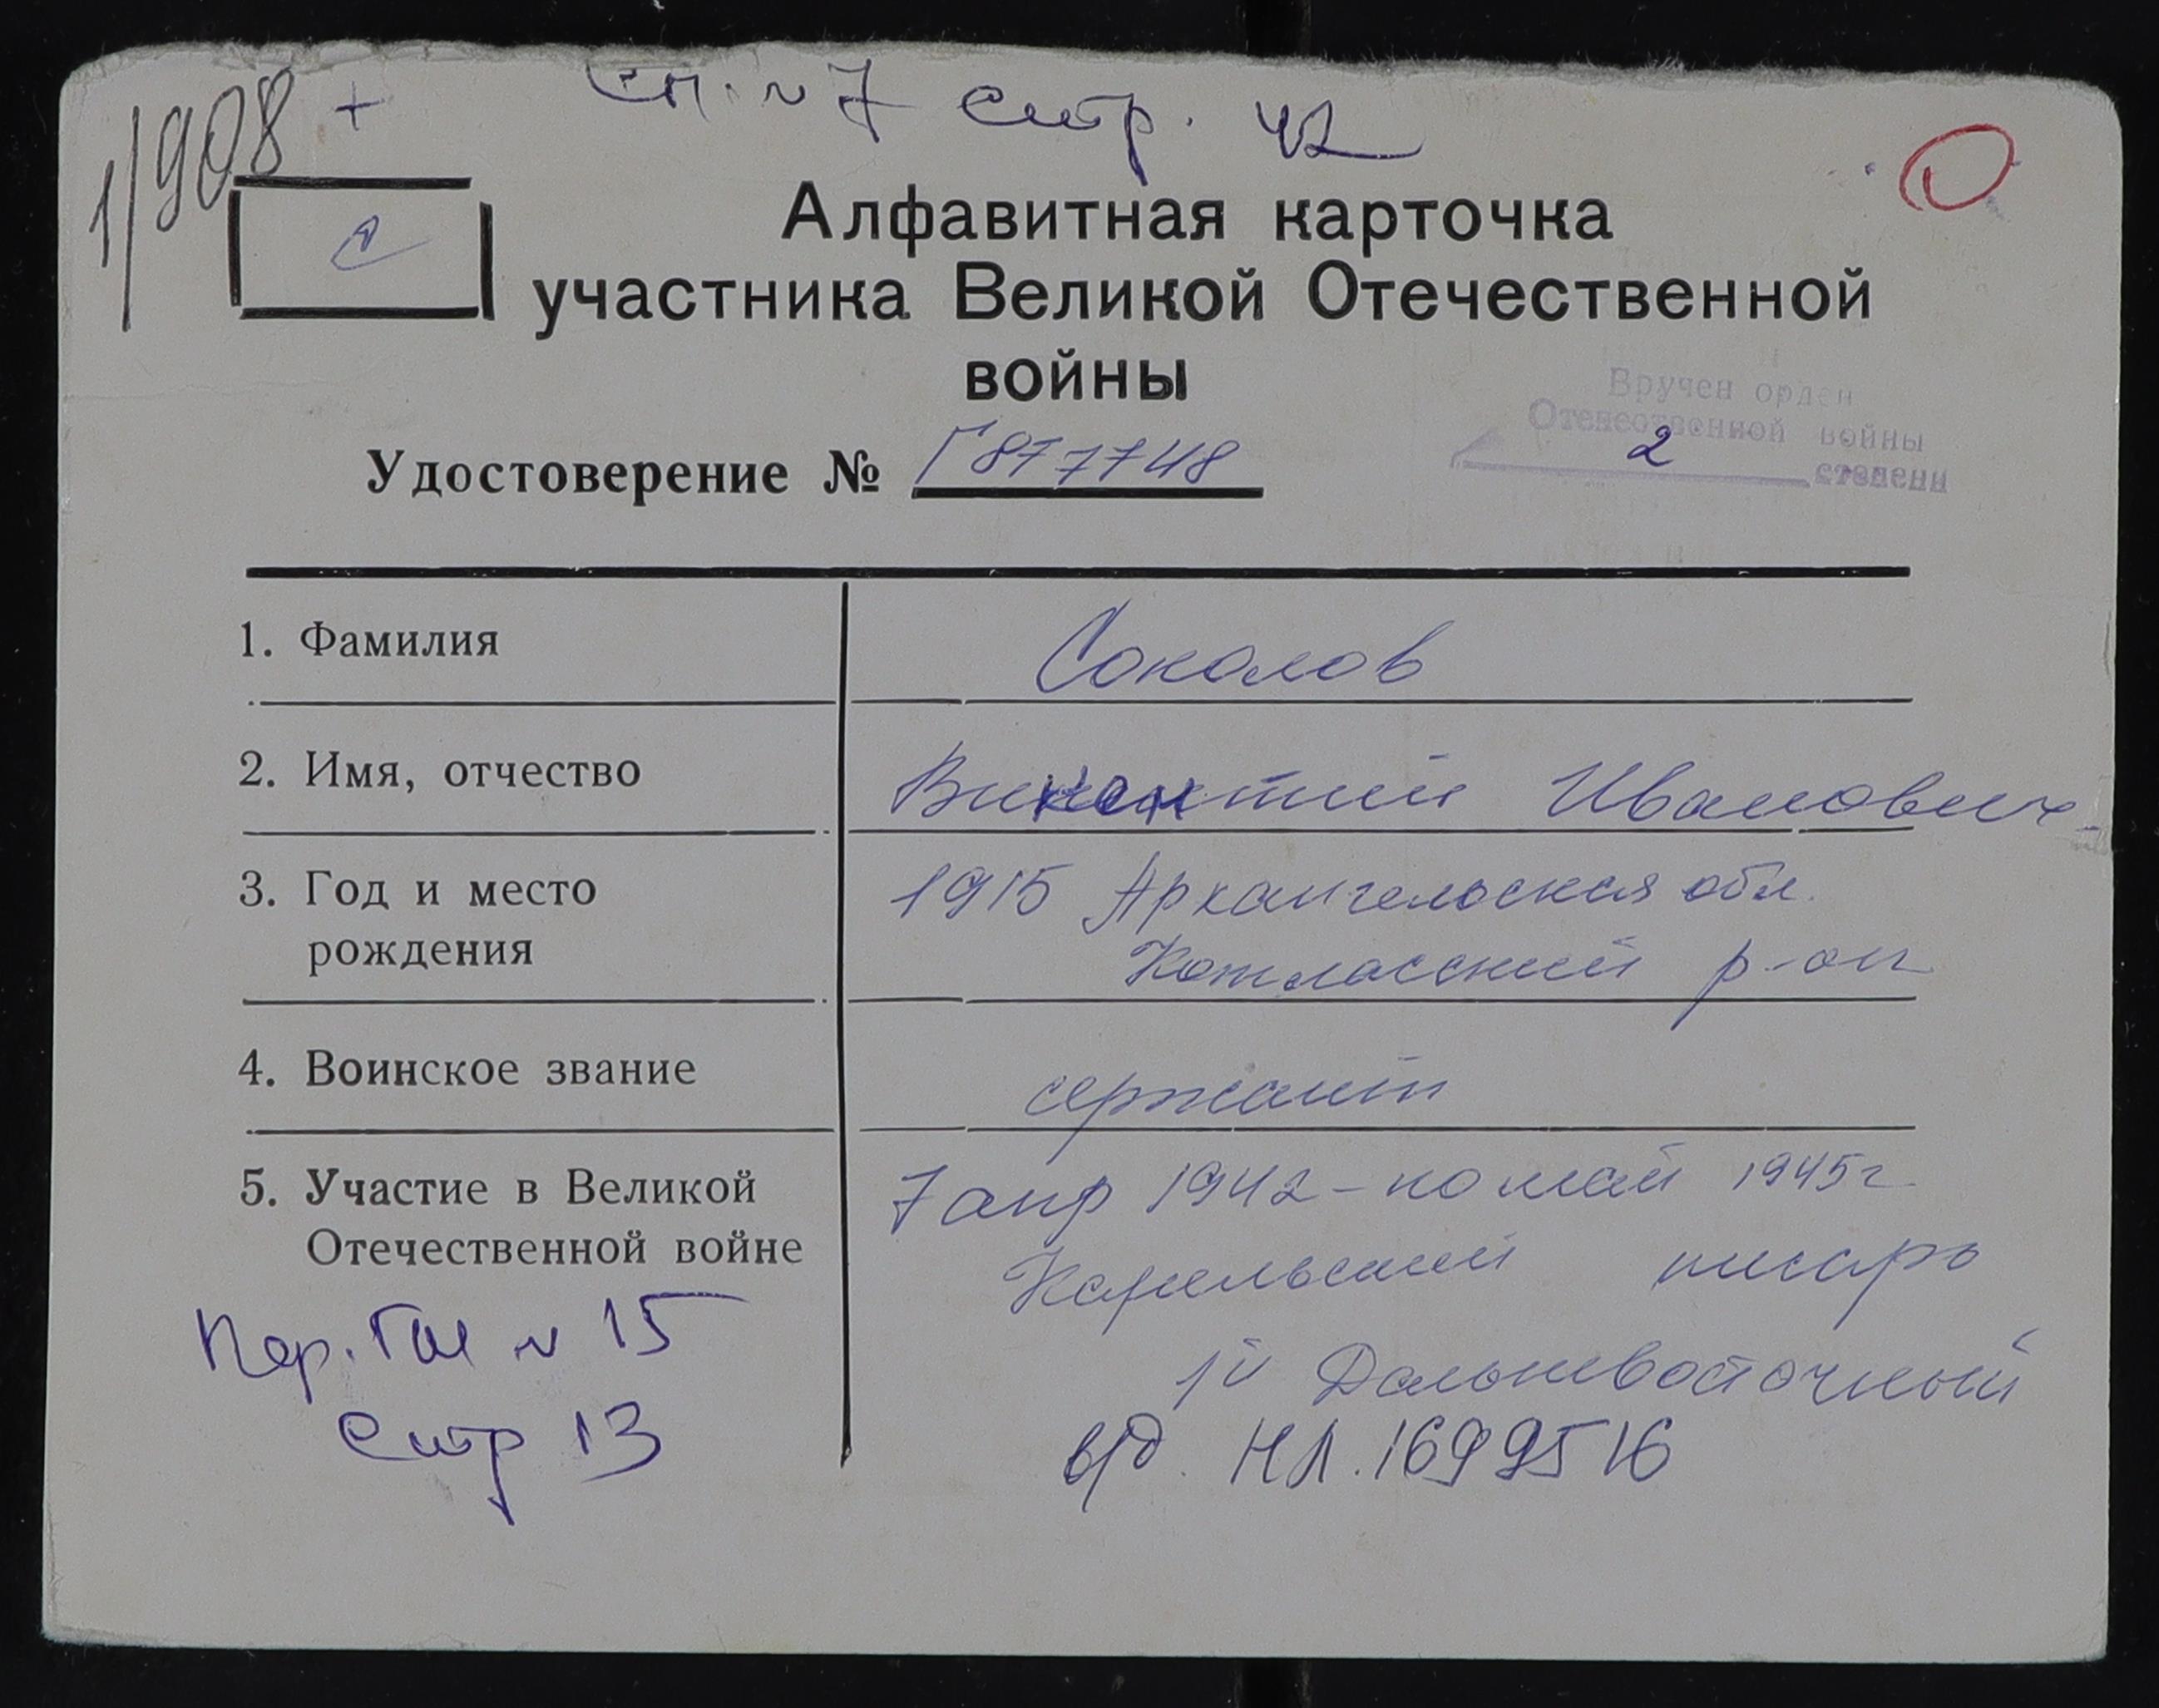 1/908 + сп. № 7 стр. 42
С
Алфавитная карточка
участника Великой Отечественной
войны
Вручен орден
Отечественной войны
2 степени
Удостоверение № Г 877748
1. Фамилия Соколов
2. Имя, отчество Викентий Иванович
3. Год и место 1915 Архангельская обл.
рождения Котласский р-он
4. Воинское звание сержант
5. Участие в Великой 7 апр 1942 - по май 1945 г
Отечественной войне Карельский писарь
1й Дальневосточный
Пер. № 15
стр 13
в/д. НЛ. 1699516